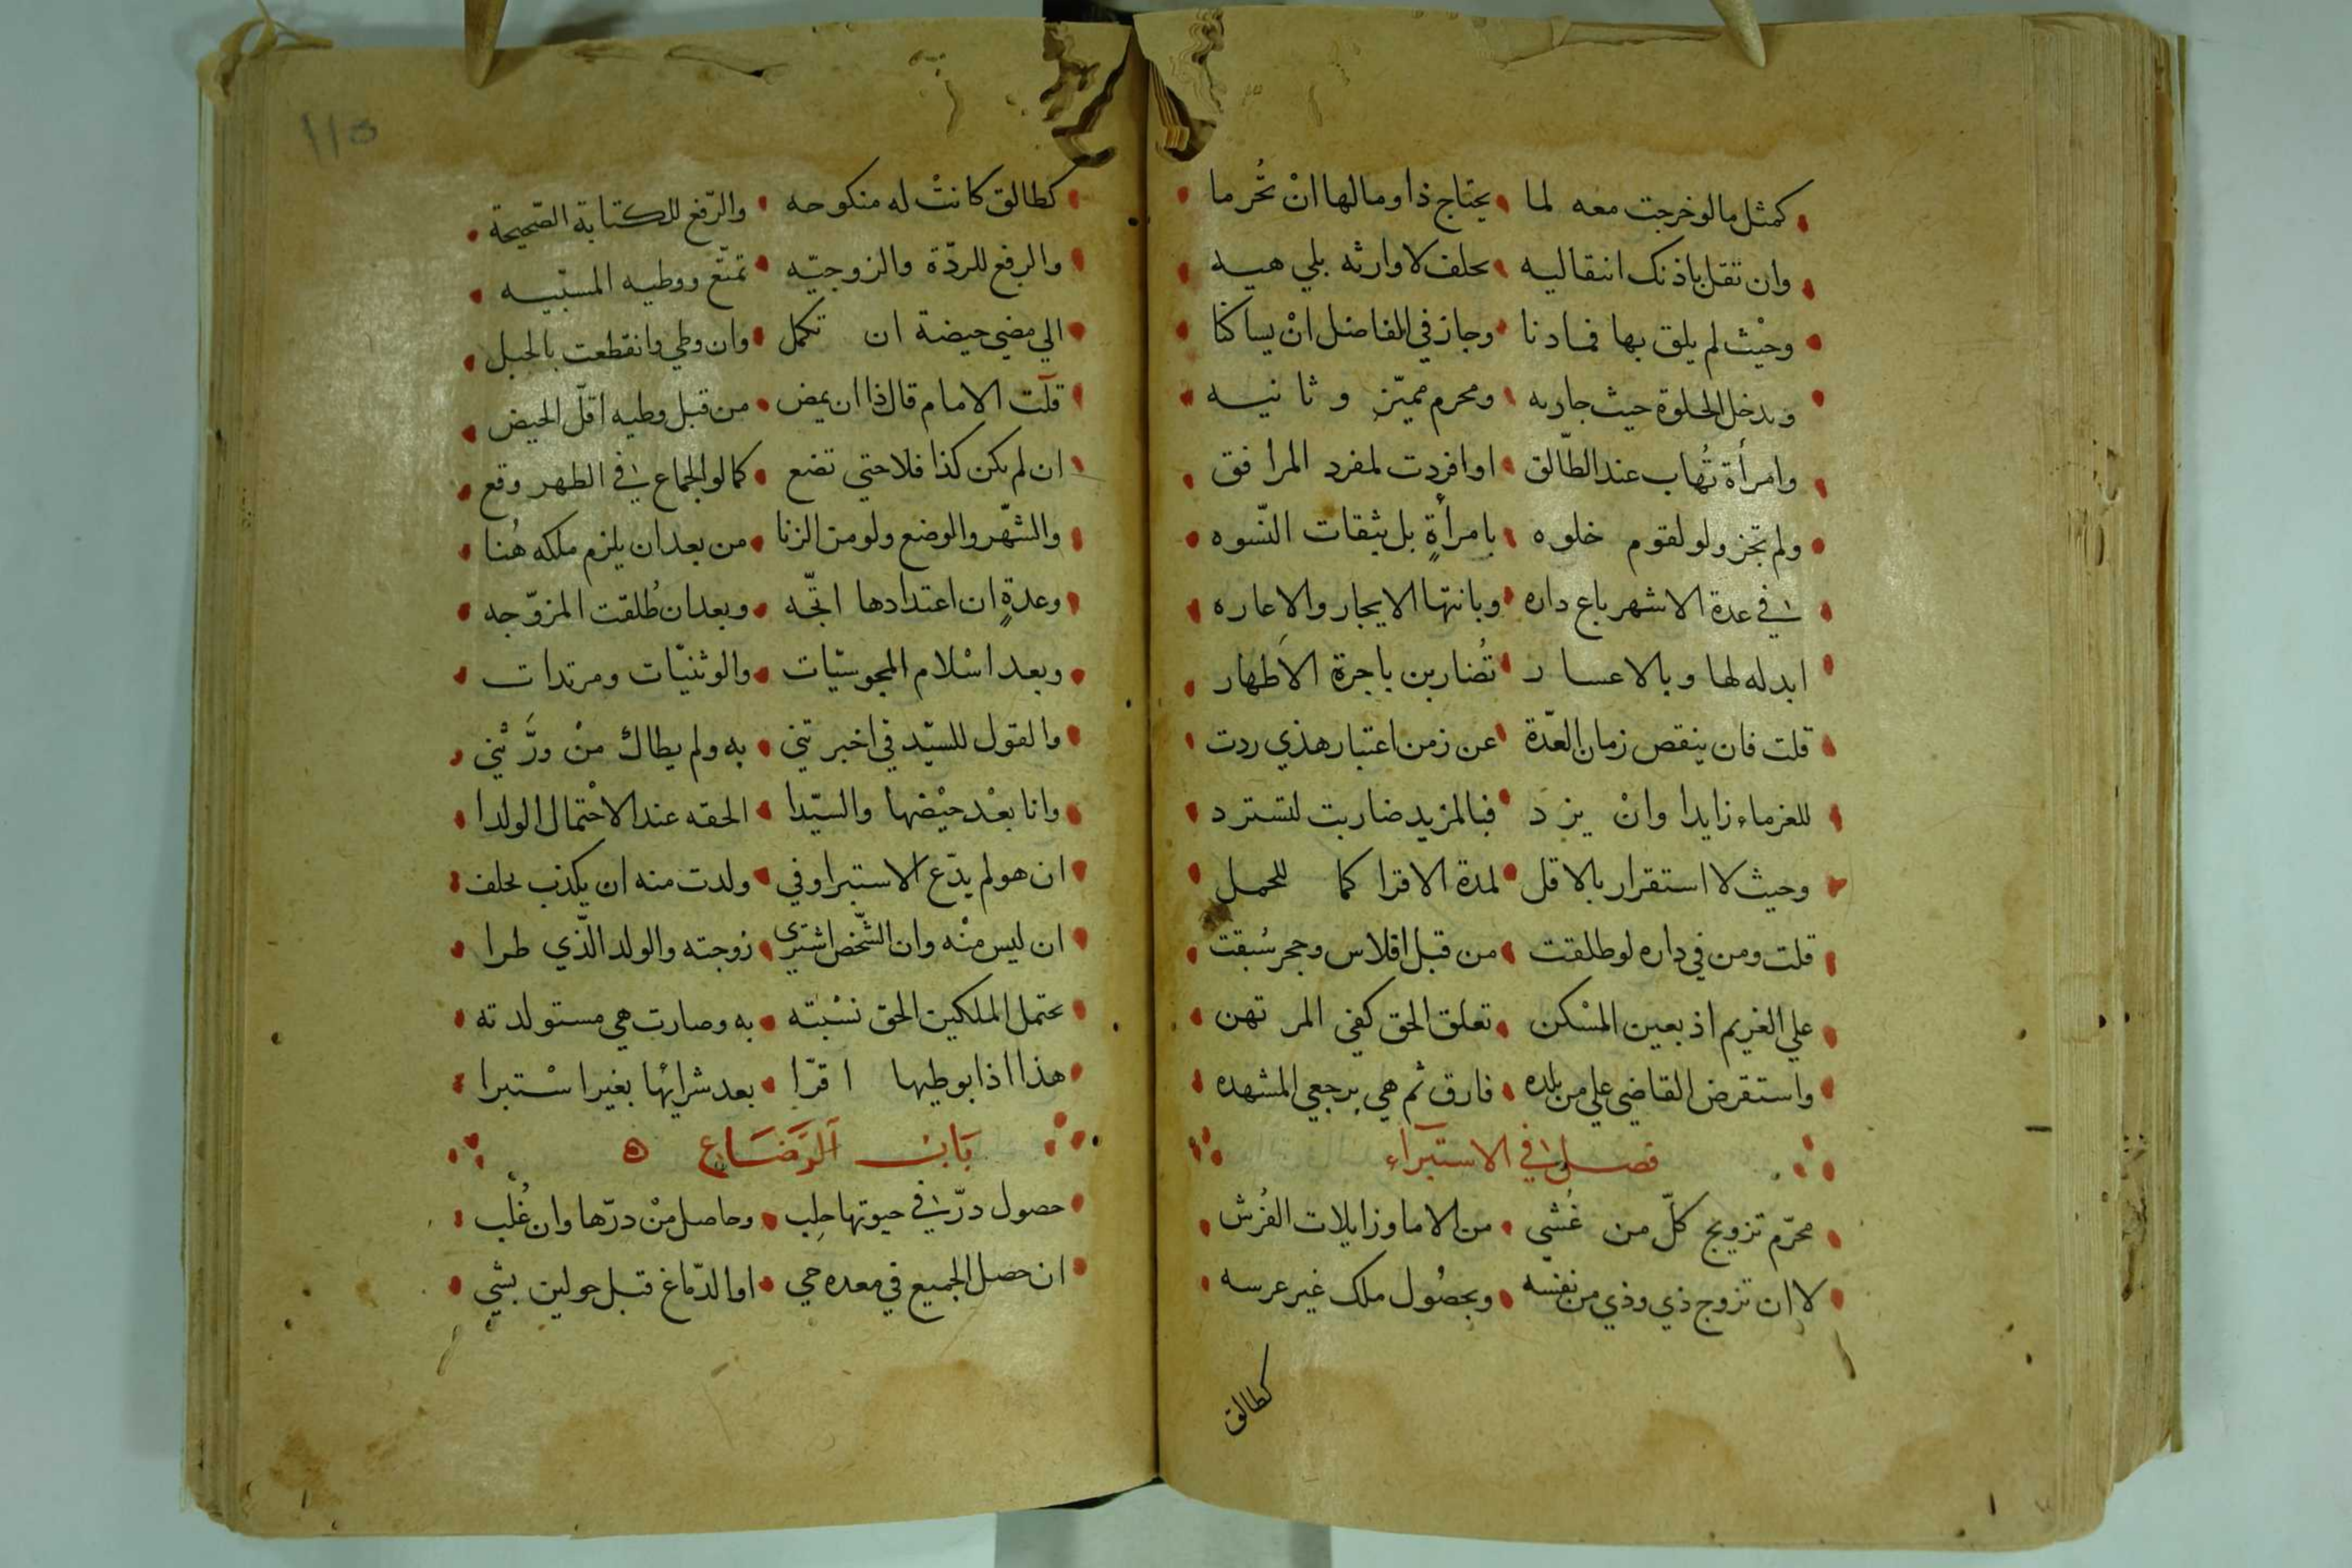 كمثل ما لو خرجت معه لما • يحتاج ذا وما لها انْ تُحرما
وان تقل باذنك انتقاليه • حلف لا وارثه بلي هيه
وحيْث لم يلق بها فمادنا • وجاز في الفاضل انْ يساكنا
ويدخل الخلوة حيث جاريه • ومحرم مميّز وثانيه
وامرأة تُهاب عند الطّالق • او افردت لمفرد المرافق
ولم تجز ولو لقوم خلوه • بامرأةٍ بل بثقات النّسوه
في عدة الاشهر باع داره • وبانتها الايجار والاعاره
ابدله لها وبالاعسار • تُضاربن باجرة الاطهار
قلت فان ينقص زمان العدّة • عن زمن اعتبار هذي ردت
للغرماء زايدا وانْ يزد • فبالمزيد ضاربت لتسترد
وحيث لا استقرار بالاقل • لمدة الاقرا كما للحمل
قلت ومن في داره لو طلقت • من قبل افلاس وحجر سُبقت
علي الغريم اذ بعين المسْكن • تعلق الحق كفي المرتهن
واستقرض القاضي علي من بلده • فارق ثم هي برجعي المشهده
فصل في الاستبراء
محرّم تزويج كلّ من غُشي • من الاما وزايلات الفُرش
لا ان تزوج ذي وذي من نفسه • وبحصُول ملك غير عرسه
كطالق
١١٥
كطالق كانتْ له منكوحه • والرّفع للكتابة الصّحيحة
والرفع للردّة والزوجيّه • تمتّع ووطيه المسبّيه
الي مضي حيضة ان تكمل • وان وطي وانقطعت بالحبل
قلت الامام قال ذا ان يمض • من قبل وطيه اقلّ الحيض
ان لم يكن كذا فلا حتي تضع • كما لو الجماع في الطهر وقع
والشهّر والوضع ولو من الزنا • من بعد ان يلزم ملكه هُنا
وعدةٍ ان اعتدادها اتجّه • وبعد ان طُلقت المزوّجه
وبعد اسْلام المجوسيّات • والوثنيّات ومرتدات
والقول للسيّد في اخبرتني • به ولم يطاكْ منْ ورَّثْني
وانا بعْد حيْضها والسيّدا • الحقه عند الاحْتمال الولدا
ان هو لم يدّع الاستبرا وفي • ولدت منه ان يكذب يحلف
ان ليس منْه وان الشّخص اشتري • زوجته والولد الّذي طرا
يحتمل الملكين الحق نسْبته • به وصارت هي مستولدته
هذا اذا بوطيها اقرّا • بعد شرايْها بغير اسْتبرا
بَابُ اَلرَّضَاع ه
حصول درّ في حيوتها حلِب • وحاصل منْ درّها وان غُلْب
ان حصل الجميع في معده حي • او الدّماغ قبل حولين بشي